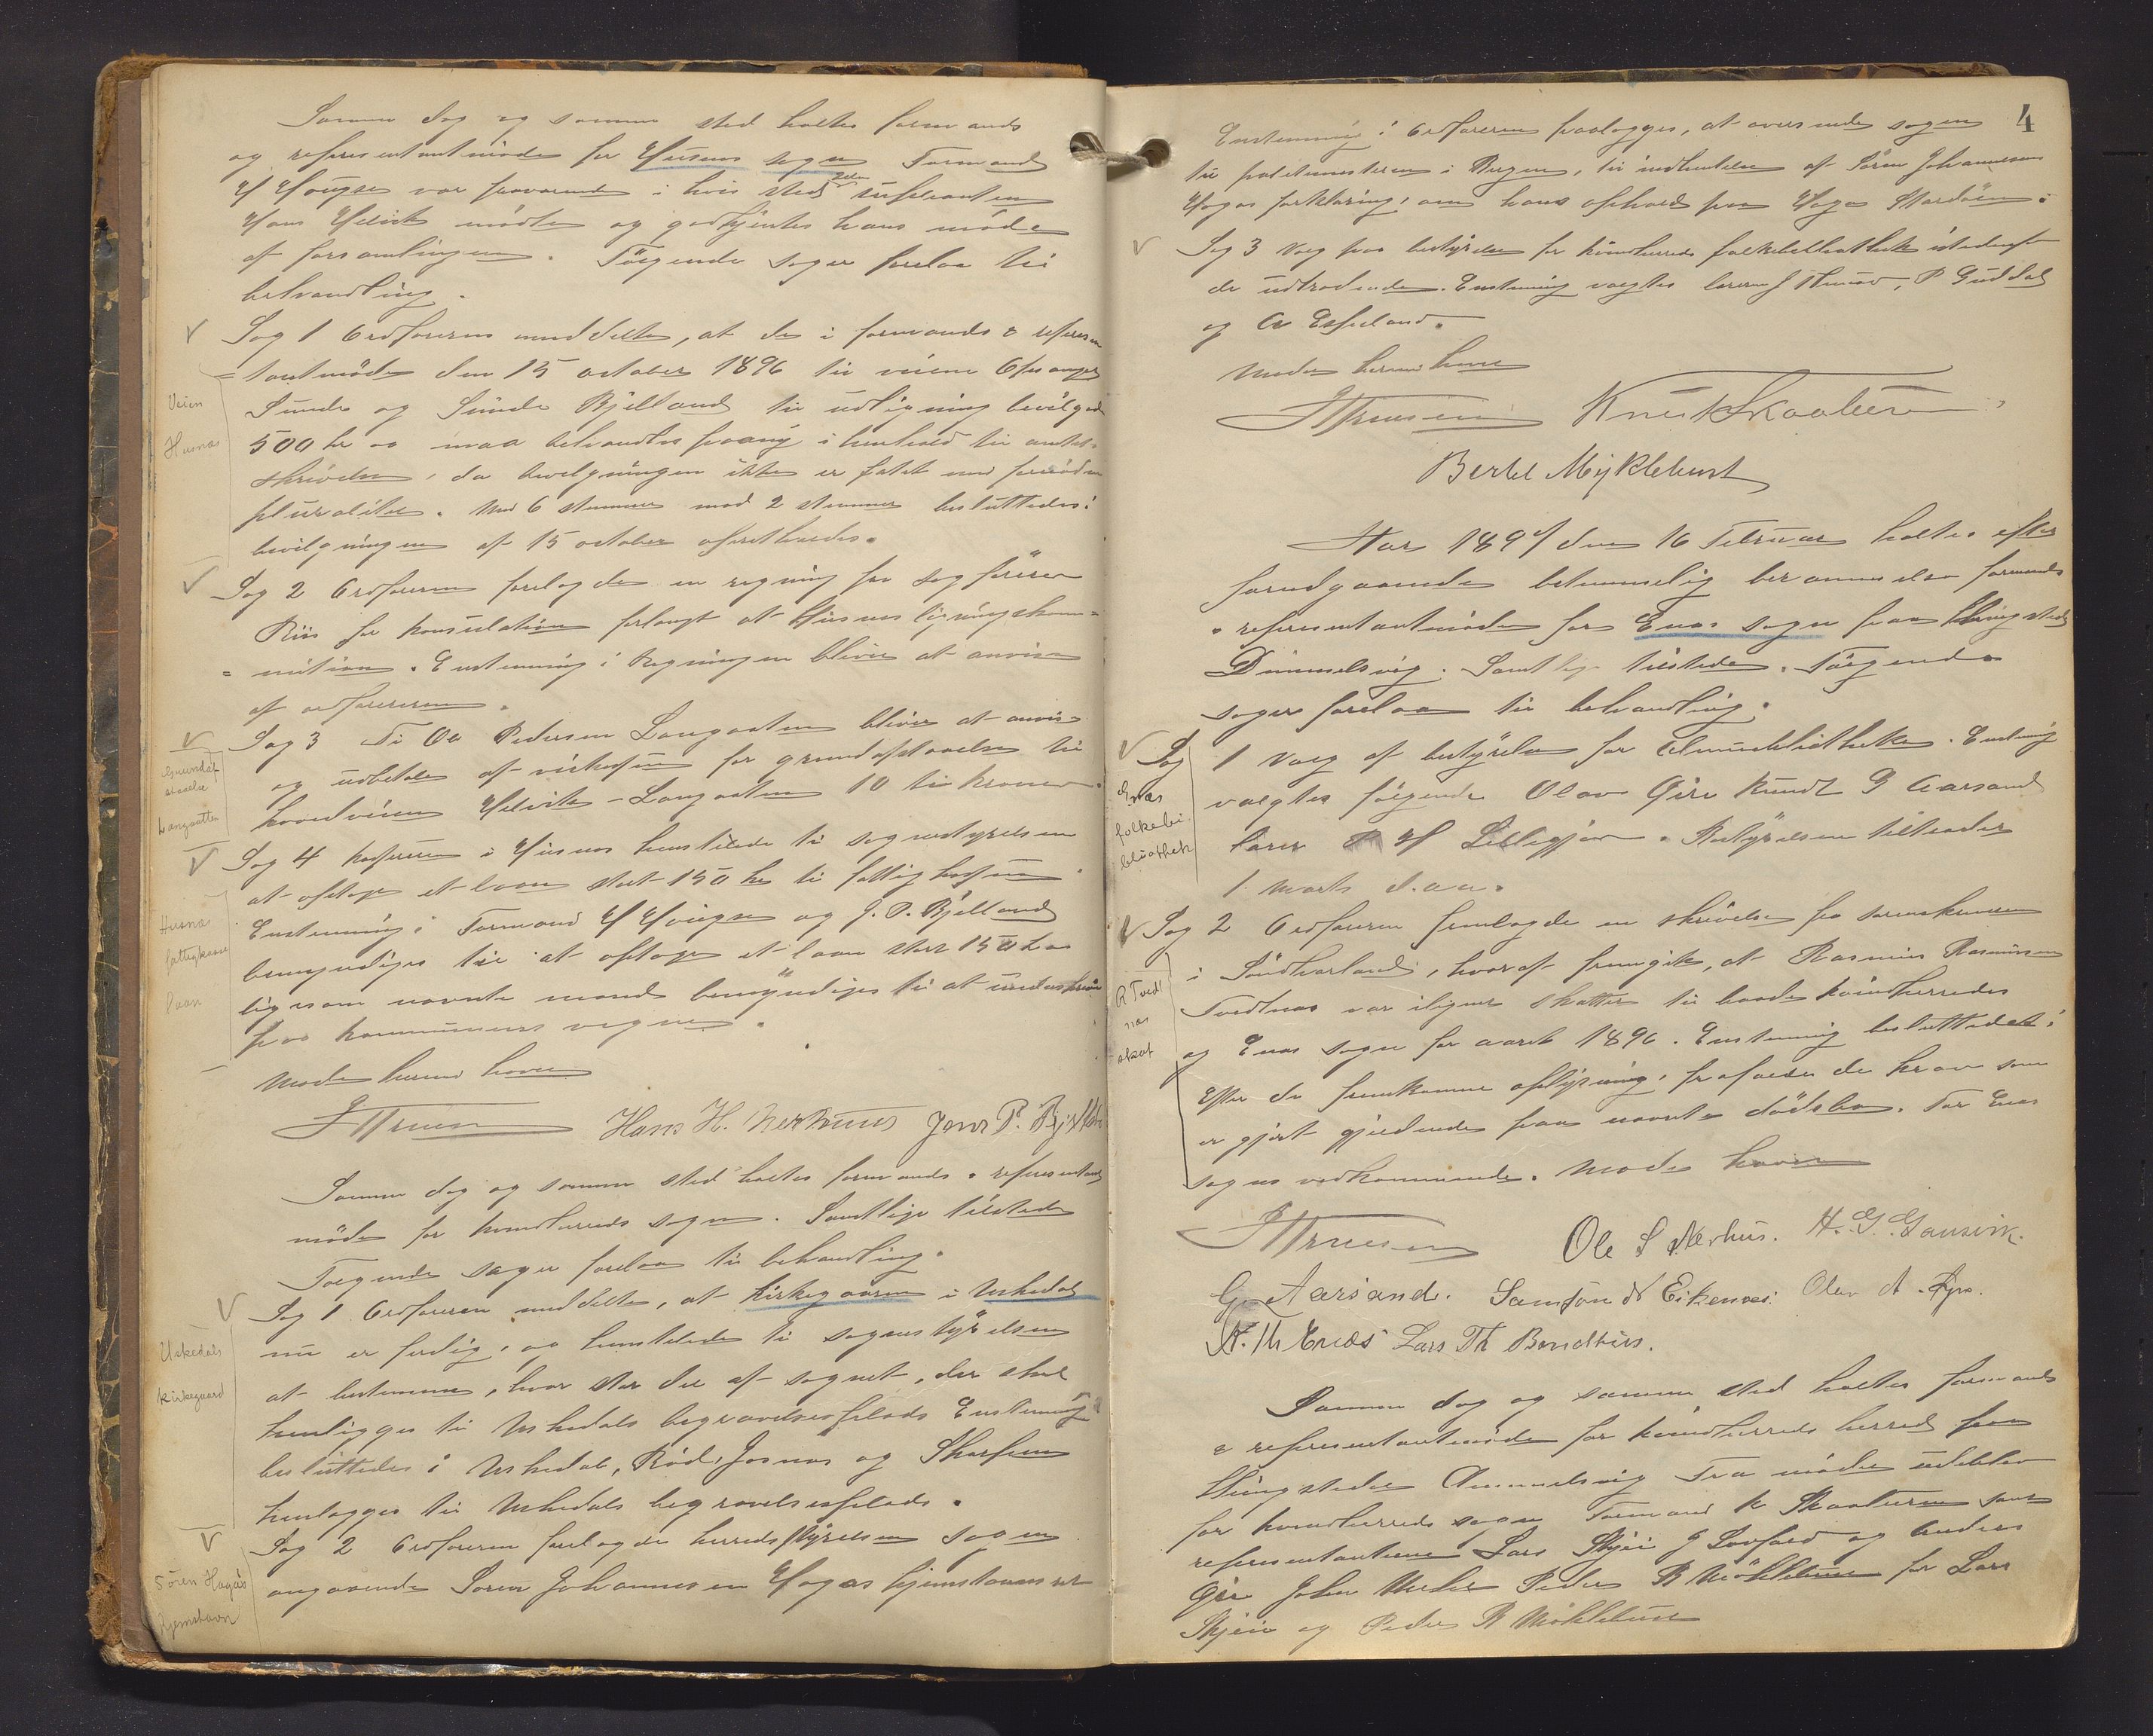 Samme dag og samme sted holtes formands
og representantmøde for Husnæs sogn Formand
H Hougse var fraværende i hvis sted suppleanten
Hans Helvik mödte og godkjentes hans möde
af forsamlingen. Fölgende sager forelaa til
behandling.
Sag 1 Ordføreren meddelte, at de i formands & represen
=tantmöde den 15 october 1896 til veiene
Veien
Husnæs
Sunde og Sunde Bjelland til udligning bevilgede
500 kr maa behandles paany i henhold til amtets
skrivelse, da bevilgningen ikke er fattet med
pluralitet. Med 6 stemmer mod 2 stemmer besluttedes:
bevilgningen af 15 october opretholdes.
Sag 2 Ordføreren forelagde en regning fra sagförer
Riis for konsulation forlangt af Husnæs ligningskom=
=mition. Enstemmig: Regningen bliver at anvise
af ordføreren.
Sag 3 Til Ole Pedersen Langaaten bliver at anvise
Grundaf
staaelse
Langaatten
og udbetale af veikassen for grundafstaaelse til
hovedveien Helvik - Langaaten 10 ti kroner.
Sag 4 kasseren i Husnæs henstillede til sognestyrelsen
at optage et laan stort 150 kr til fattigkassen.
Husnæs
fattigkasse
laan
Enstemmig: Formand H Hougse og J. P. Bjelland
bemyndiges til at optage et laan stort 150 kr
ligesom nævnte mænd bemyndiges til at underskrive
paa kommunens vegne.
Mödet hermed hævet
Hans H. Nerhuus Jens P. Bjelland
Samme dag og samme sted holtes formands & representant
möde for kvindherreds sogn. Samtlige tilstede
Fölgende sager forelaa til behandling.
Sag 1 Ordføreren meddelte, at kirkegaaren i Uskedal
Uskedals
kirkegaard
nu er ferdig, og henstillede til sognestyrelsen
at bestemme, hvor stor del af sognet, der skal
henligges til Uskedals begravelsesplads Enstemmig
besluttedes: Uskedal, Röd, Josnæs og Skorpen
henlægges til Uskedals begravelsesplads.
Sag 2 Ordføreren forelagde herredsstyrelsen sagen
Sören Hagas
hjemstavn
angaaende Sören Johannesen Hagas hjemstavnsret
4
Enstemmig: Ordföreren paalægges, at oversende sagen
til politimesteren i Bergen, til indhentelse af Sören Johannesen
Hagas forklaring, om hans ophold paa
Sag 3 Valg paa bestyrelse for kvindherreds folkebibliothek istedenfor
de udtrædende. Enstemmig valgtes lærer J Thuno, P Guddal
og Ole Esheland.
Mödet hermed hævet
Knut Skaaluren
Bertel Myklebust
Aar 1897 den 16 Februar holtes efter
forudgaaende betimmelig berammelse formands
& representantmöde for Enæs sogn paa thingstedet
Dimmelsvig. Samtlige tilstede. Fölgende
sager forelaa til behandling.
Sag 1 Valg af bestyrelse for almuebibliotheket. Enstemmig
Enæs
folkebi
bliothek
valgtes fölgende Olav Gire Knudt G Aarsand
lærer H Lillegjær. Bestyrelsen tiltræder
1 Marts d.aa.
Sag 2 Ordföreren fremlagde en skrivelse fra sorenskriveren
i Söndhorland, hvoraf fremgik, at Rasmus Rasmusen
R Tved
næs
skat
Tvednæs var ilignet skatter til baade kvindherreds
og Enæs sogn for aaret 1896. Enstemmig besluttedet:
Efter de fremkomne oplysning, frafaldes de krav som
er gjort gjældende paa nævnte dödsbo. For Enæs
sogns vedkommende. Mödet hævet
Ole S Nerhus. H. G. Gausvik.
G. Aarsand. Samson N Eikenæs. Olav A. Gjro.
N. Th Enæs Lars Th Bondhus.
Samme dag og samme sted holtes formands
& representantmöde for kvindherreds herred paa
thingstedet Dimmelsvig Fra mödet udeblev
for kvindherreds sogn Formand K Skaaluren samt
representanterne Lars Skjeie G Lofald og Anders
Gire John Peder R Möklebust for Lars
Skjeie og Peder R Möklebust